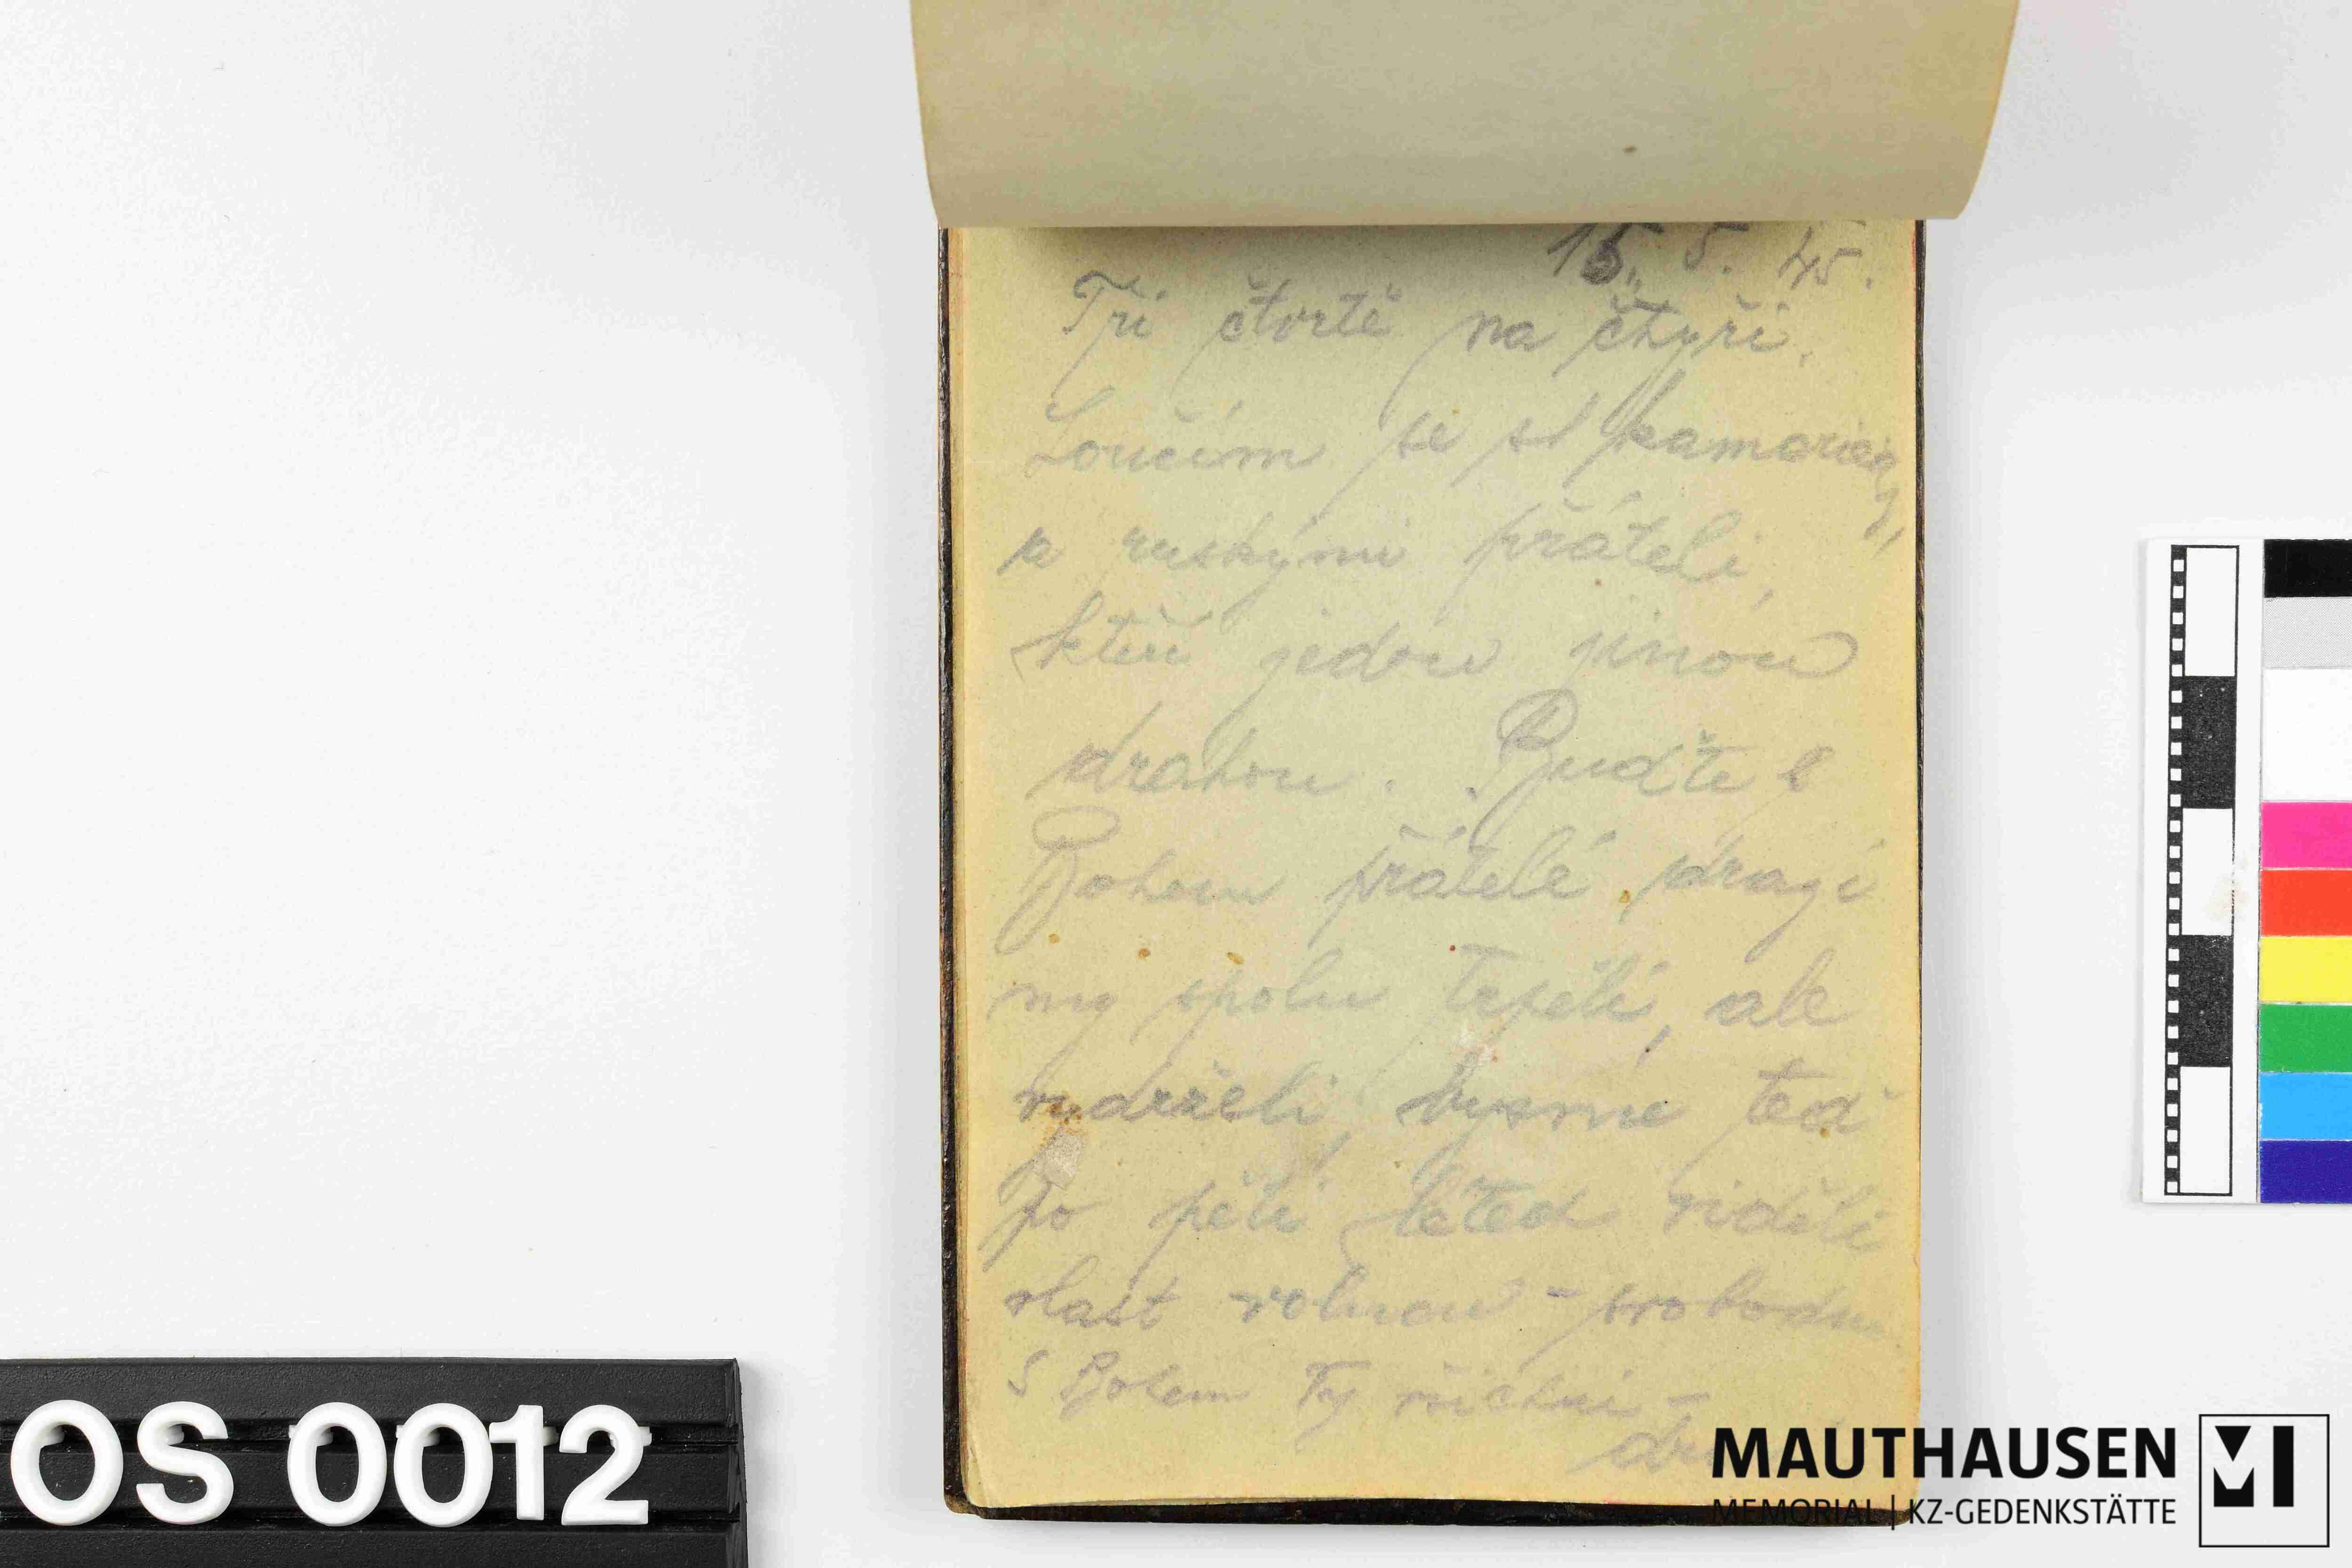 15. 5. 45.
Tři čtvrtě na čtyři.
Loučím se s kamarády,
a ruskými přáteli,
kteří jedou jinou
drahou. Buďte s
Bohem přátelé, drazí
my spolu trpěli, ale
vydrželi, bysme teď
po pěti letech viděli
vlast volnou - svobodnou
S Bohem Ty všichni -
OS 0012
MAUTHAUSEN
MEMORIAL | KZ-GEDENKSTÄTTE